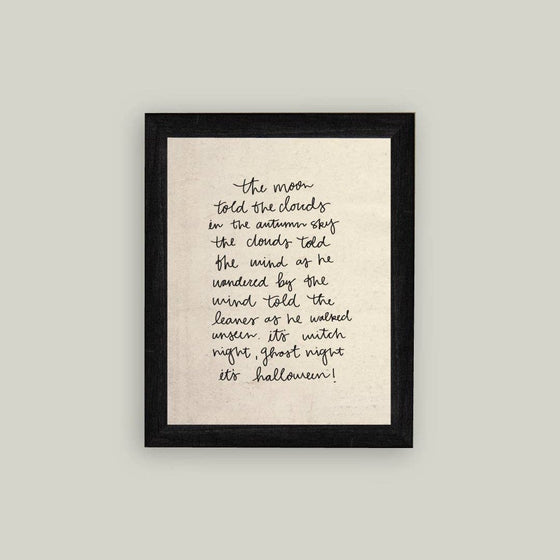 the moon
told the clouds
in the autumn sky
the clouds told
the wind as he
wandered by the
wind told the
leaves as he walked
unseen. it's witch
night, ghost night
it's halloween!